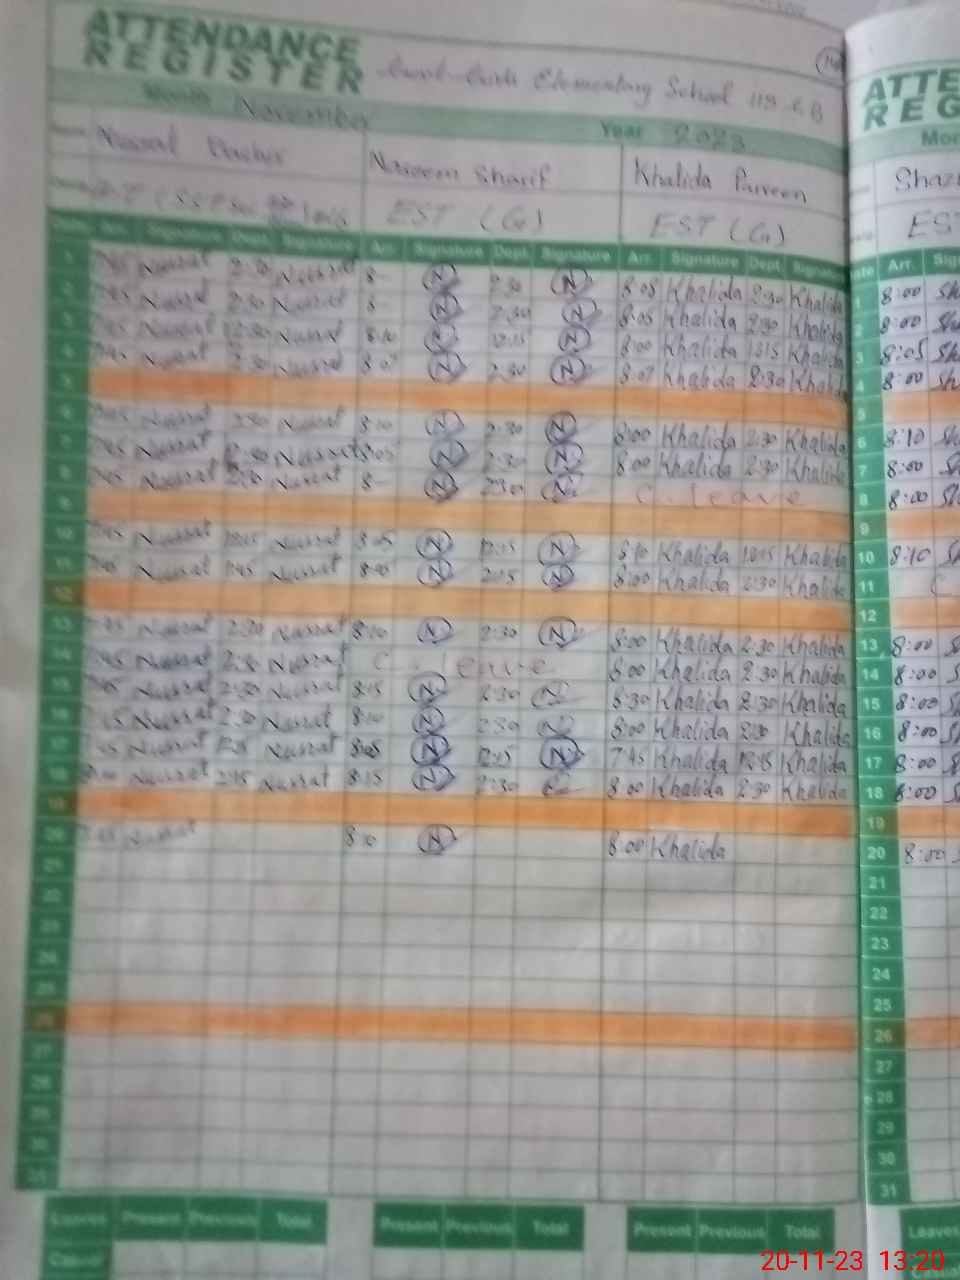 ATTENDANCE
REGISTER
Elementary School
Month November Year 2023
Nusrat Naseem Sharif Khalida Parveen
EST (G) EST (G)
Arr. Signature Dept. Signature Arr. Signature Dept. Signature
1 Nusrat 2:30 Nusrat 8- N 2:30 N 8:05 Khalida 2:30 Khalida
2 7:45 Nusrat 2:30 Nusrat 8- N 2:30 N 8:05 Khalida 2:30 Khalida
3 7:45 Nusrat 12:30 Nusrat 8:10 N 12:15 N 8:00 Khalida 12:15 Khalida
4 7:45 Nusrat 2:30 Nusrat 8:07 N 2:30 N 8:07 Khalida 2:30 Khalida
5
6 7:45 Nusrat 2:30 Nusrat 8:10 N 2:30 N 8:00 Khalida 2:30 Khalida
7 7:45 Nusrat 2:30 Nusrat 8:05 N 2:30 N 8:00 Khalida 2:30 Khalida
8 7:45 Nusrat 2:30 Nusrat 8- N 2:30 N C. leave
9
10 7:45 Nusrat Nusrat 8:05 N 12:15 N 8:10 Khalida Khalida
11 7:45 Nusrat Nusrat N 2:15 N 8:00 Khalida 2:30 Khalida
12
13 7:45 Nusrat 2:30 Nusrat 8:10 N 2:30 N 8:00 Khalida 2:30 Khalida
14 7:45 Nusrat 2:30 Nusrat C. leave 8:00 Khalida 2:30 Khalida
15 7:45 Nusrat 2:30 Nusrat 8:15 N 2:30 N 8:30 Khalida 2:30 Khalida
16 7:45 Nusrat 2:30 Nusrat 8:10 N 2:30 N 8:00 Khalida 2:30 Khalida
17 7:45 Nusrat Nusrat 8:05 N 12:15 N 7:45 Khalida 12:15 Khalida
18 8:00 Nusrat 2:45 Nusrat 8:15 N 2:30 8:00 Khalida 2:30 Khalida
19
20 7:45 Nusrat 8:10 N 8:00 Khalida
21
22
23
24
25
26
27
28
29
30
31
Leaves Present Previous Total Present Previous Total Present Previous Total
Casual
ATTE
REG
Mon
Shaz
EST
Date Arr. Sig
1 8:00 Sh
2 8:00 Sh
3 8:05 Sh
4 8:00 Sh
5
6 8:10 Sh
7 8:00 Sh
8 8:00 Sh
9
10 8:10 Sh
11 C
12
13 8:00 S
14 8:00 S
15 8:00 S
16 8:00 S
17 8:00 S
18 8:00 S
19
20 8:00 S
21
22
23
24
25
26
27
28
29
30
31
Leaves
20-11-23 13:20